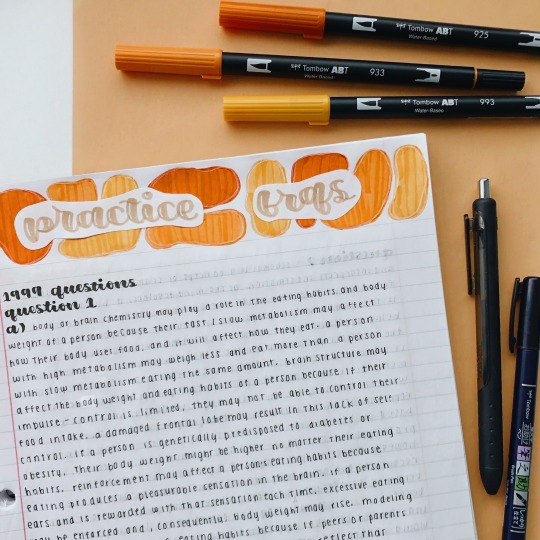 Tombow ABT 925
Water-Based
Tombow ABT 933
Water-Based
Tombow ABT 993
Water-Based
practice frqs
1999 questions
question 1
a) body or brain chemistry may play a role in the eating habits and body
weight of a person because their fast/slow metabolism may affect
how their body uses food, and it will affect how they eat. a person
with high metabolism may weigh less and eat more than a person
with slow metabolism eating the same amount. brain structure may
affect the body weight and eating habits of a person because if their
impulse-control is limited, they may not be able to control their
food intake. a damaged frontal lobe may result in this lack of self
control. if a person is genetically predisposed to diabetes or
obesity, their body weight might be higher no matter their eating
habits. reinforcement may affect a person's eating habits because
eating produces a pleasurable sensation in the brain. if a person
eats and is rewarded with that sensation each time, excessive eating
may be enforced and, consequently, body weight may rise. modeling
eating habits because if peers or parents
reflect that